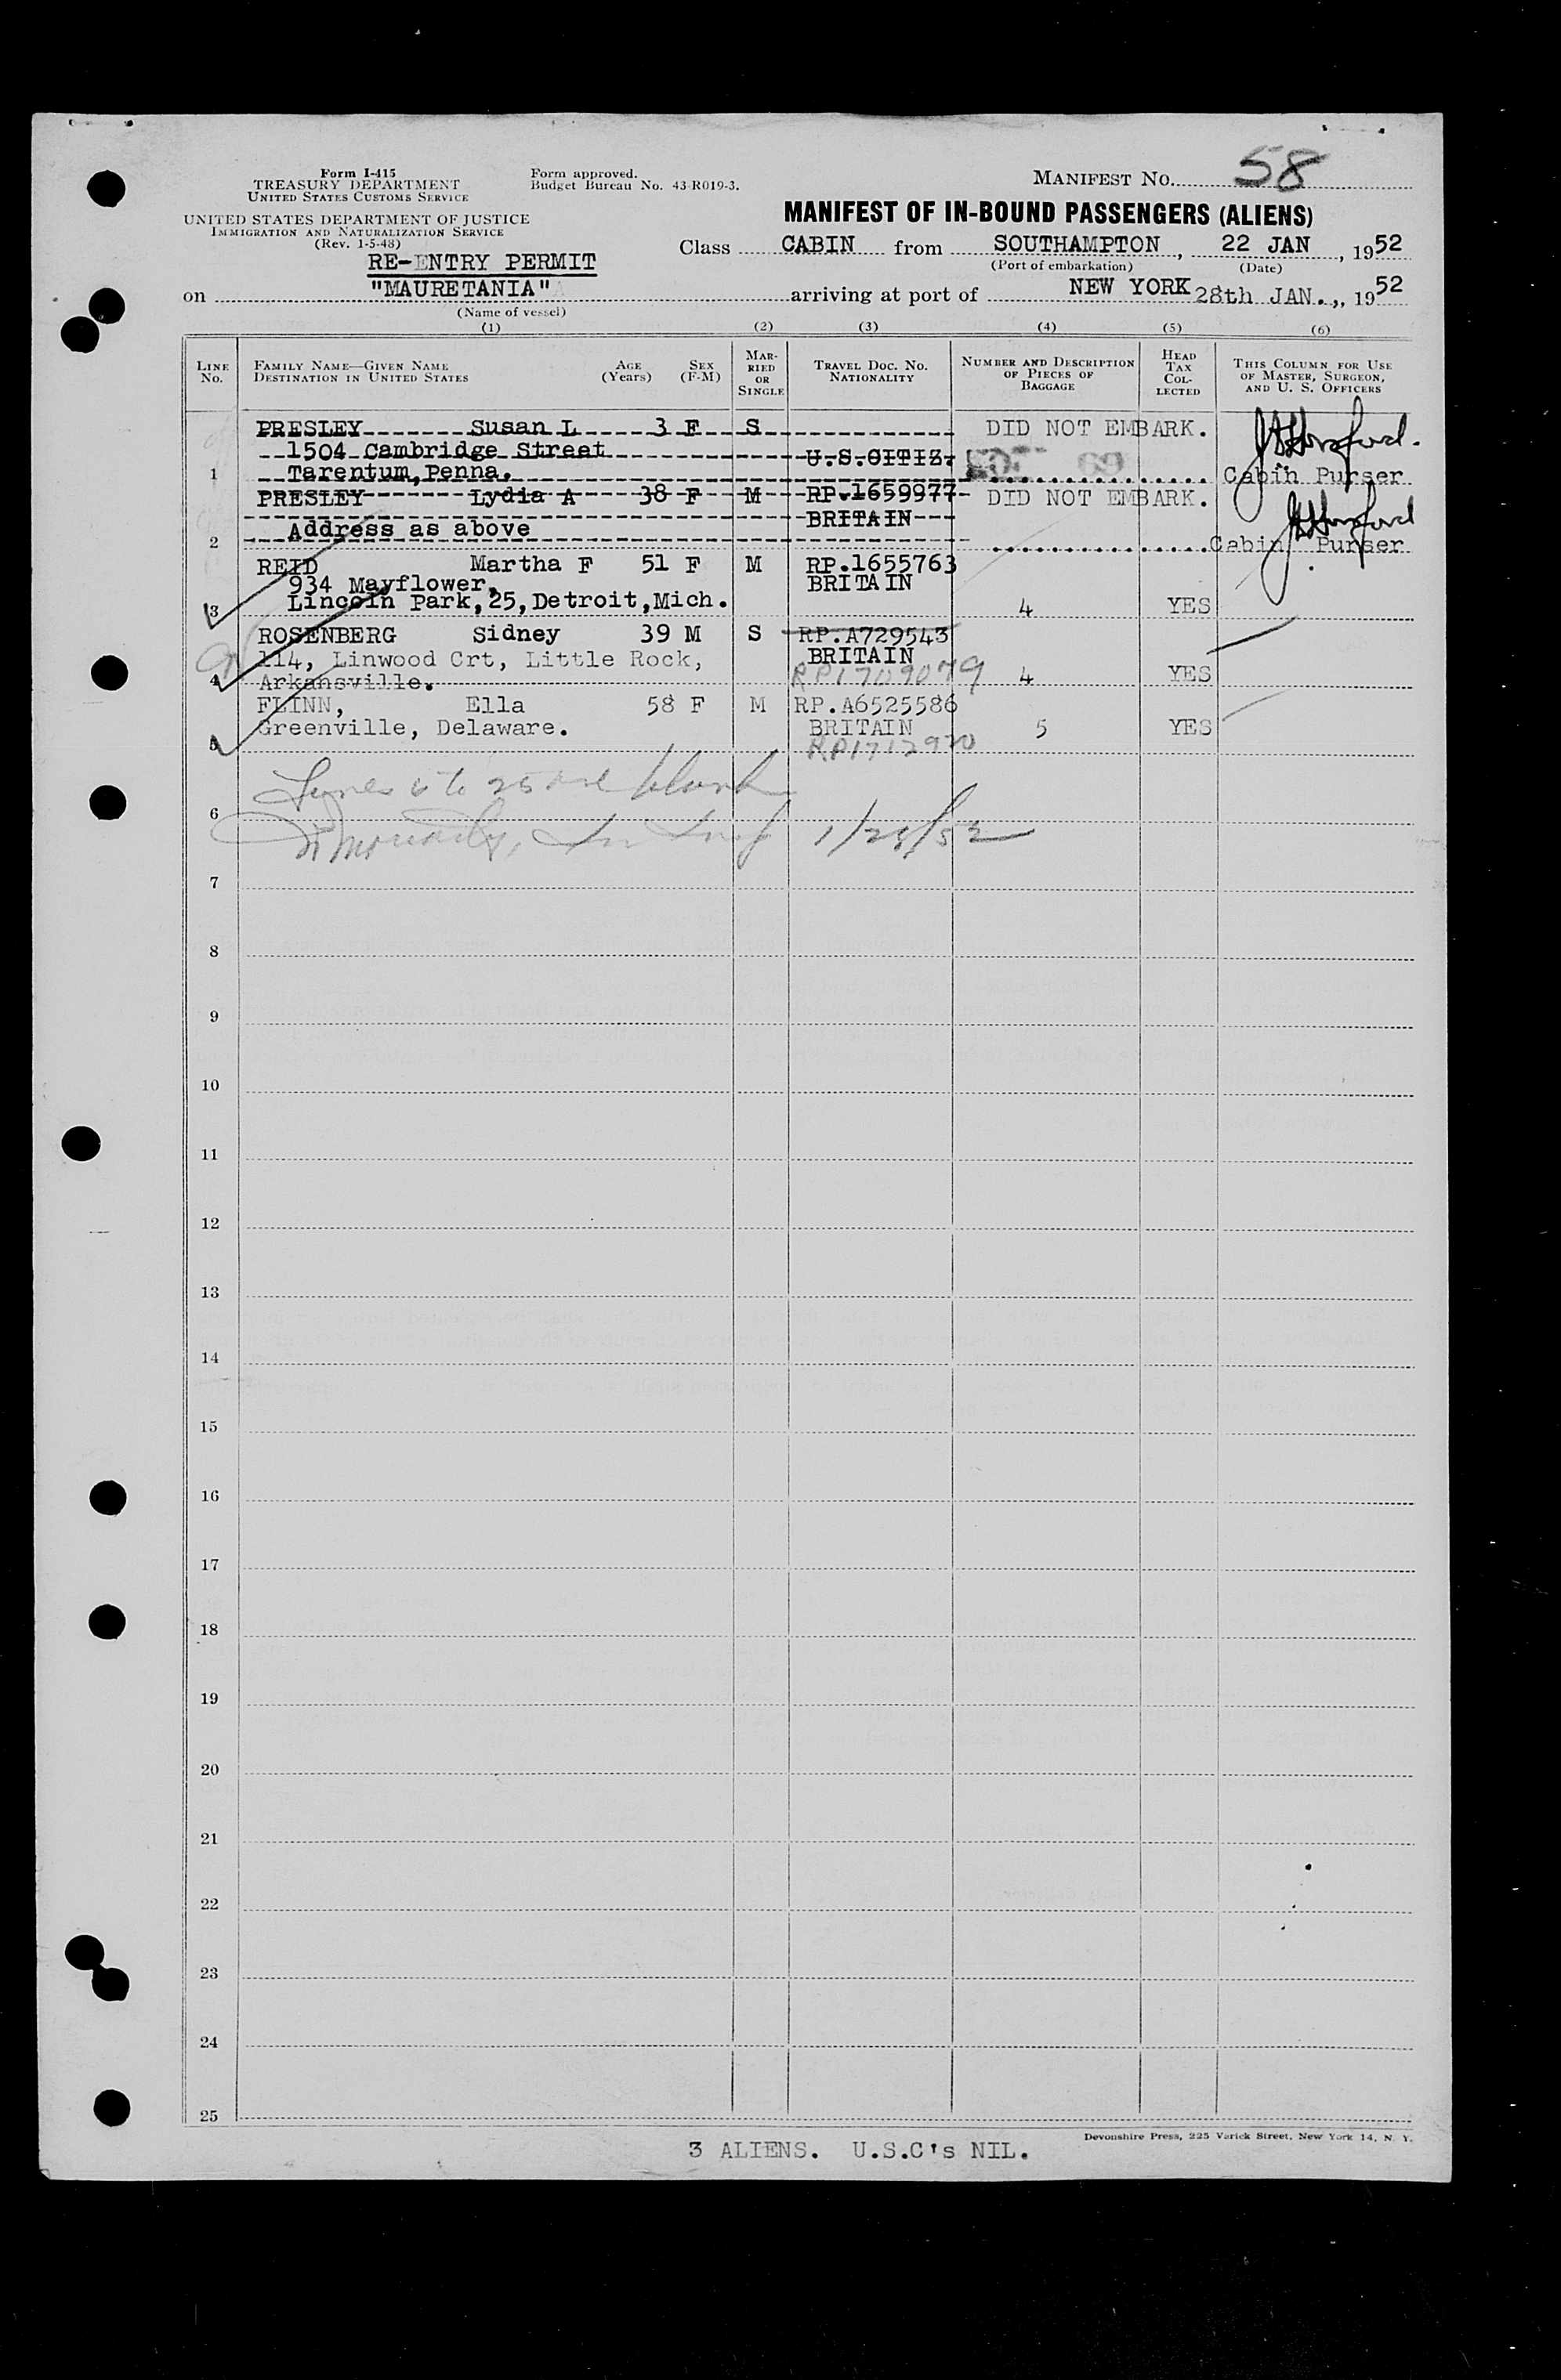 Form I-415
TREASURY DEPARTMENT
UNITED STATES CUSTOMS SERVICE
UNITED STATES DEPARTMENT OF JUSTICE
IMMIGRATION AND NATURALIZATION SERVICE
(Rev. 1-5-48)
Form approved.
Budget Bureau No. 43-R019-3.
MANIFEST NO. 58
MANIFEST OF IN-BOUND PASSENGERS (ALIENS)
RE-ENTRY PERMIT
Class CABIN from SOUTHAMPTON, 22 JAN, 1952
(Port of embarkation) (Date)
on "MAURETANIA" arriving at port of NEW YORK 28th JAN., 1952
(Name of vessel)
(1) (2) (3) (4) (5) (6)
LINE No. FAMILY NAME—GIVEN NAME DESTINATION IN UNITED STATES AGE (Years) SEX (F-M) MARRIED OR SINGLE TRAVEL DOC. NO. NATIONALITY NUMBER AND DESCRIPTION OF PIECES OF BAGGAGE HEAD TAX COLLECTED THIS COLUMN FOR USE OF MASTER, SURGEON, AND U. S. OFFICERS
PRESLEY Susan L 3 F S DID NOT EMBARK.
1504 Cambridge Street U.S.CITIZ.
1 Tarentum, Penna. Cabin Purser
PRESLEY Lydia A 38 F M RP.1659977 DID NOT EMBARK.
BRITAIN
2 Address as above Cabin Purser
REID Martha F 51 F M RP.1655763
934 Mayflower, BRITAIN
3 Lincoln Park,25,Detroit,Mich. 4 YES
ROSENBERG Sidney 39 M S RP.A729543
114, Linwood Crt, Little Rock, BRITAIN
4 Arkansville. RP1709079 4 YES
FLINN, Ella 58 F M RP.A6525586
Greenville, Delaware. BRITAIN 5 YES
5 RP1712970
Lines 6 to 25 are blank
6
1/28/52
7
8
9
10
11
12
13
14
15
16
17
18
19
20
21
22
23
24
25
Devonshire Press, 225 Varick Street, New York 14, N. Y.
3 ALIENS. U.S.C's NIL.